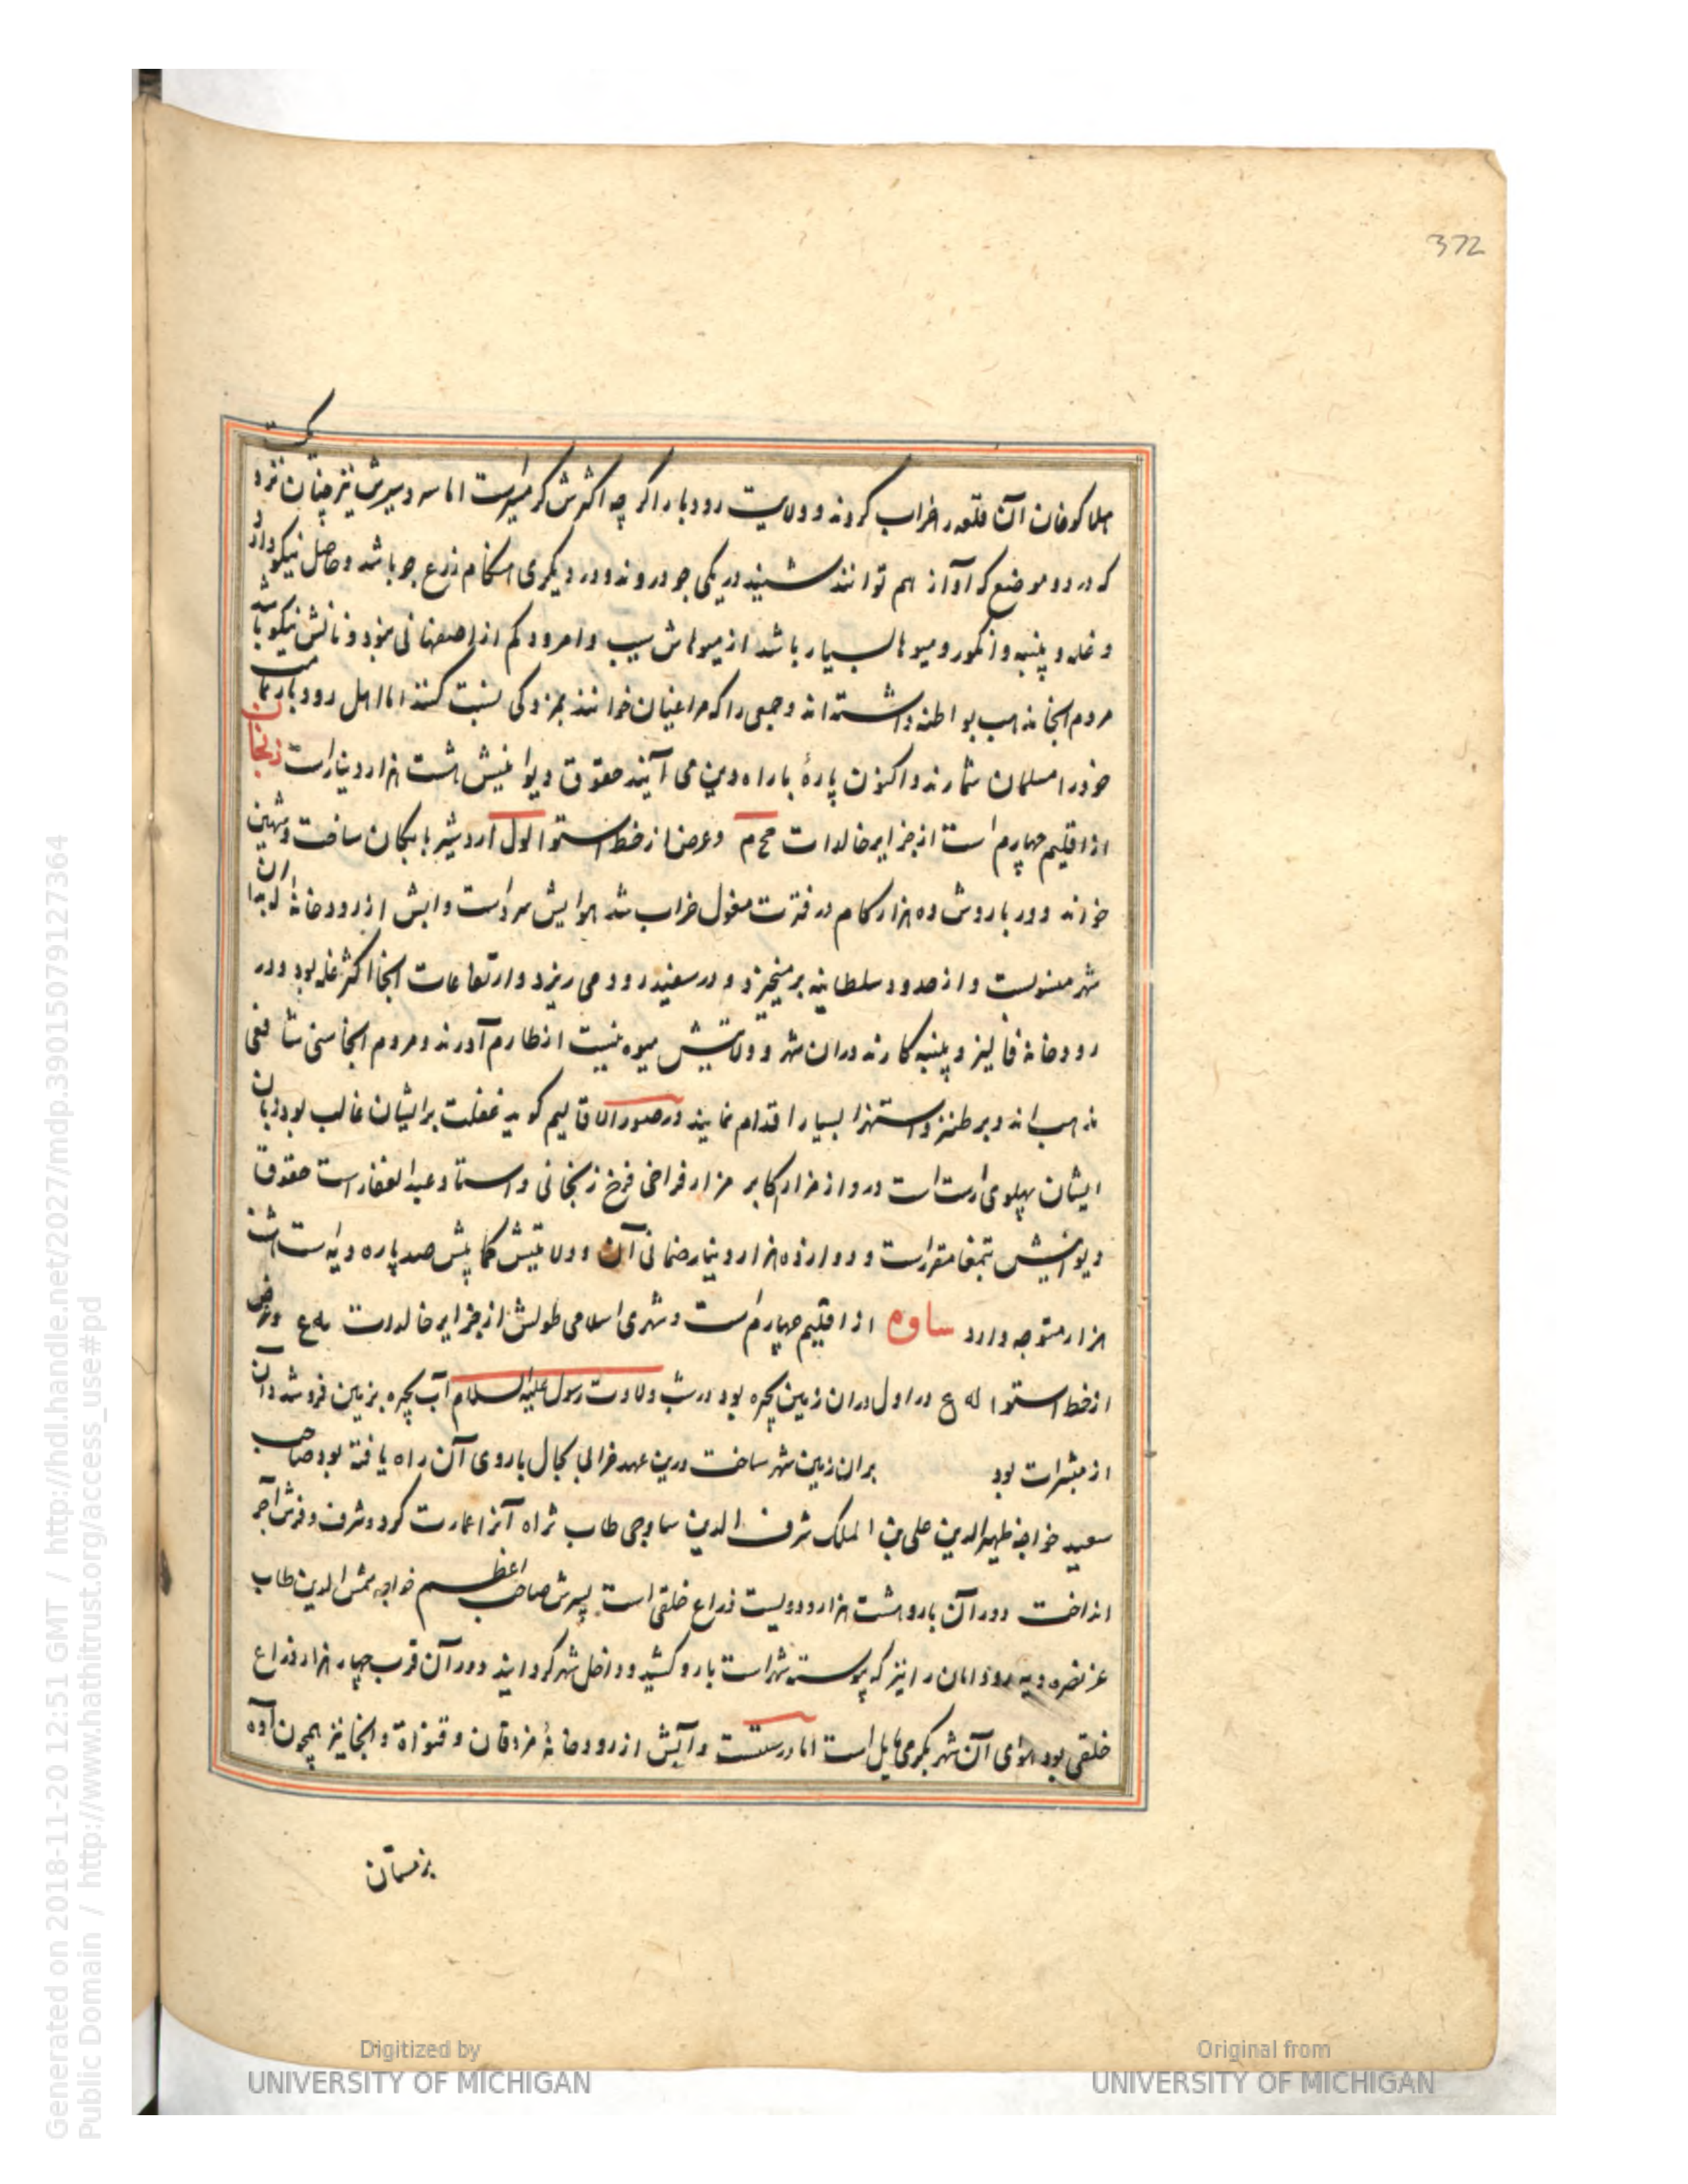 372
هلاکوخان آن قلعه را خراب کردند و ولایت رودبار اگر چه اکثرش گرمسیراست اما سردسیرش نیز چنان نزدیکست
که در دو موضع که آواز هم توانند شنید در یکی جو دروند و در دیگری هنگام زرع جو باشد و حاصل نیکو دارد
و غله و پنبه و انگور و میوها بسیار باشد از میوهاش سیب و امرود کم از اصفهانی نبود و نانش نیکو باشد
مردم انجا مذهب بواطنه داشته اند و جمعی را که مراغیان خوانند بمزدکی نسبت کنند اما اهل رودبار تمامت
خود را مسلمان شمارند و اکنون پارهٔ با راه دین می آیند حقوق دیوانیش هشت هزار دینار است زنجان
از اقلیم چهارم است از جزایر خالدات مح م و عرض از خط استوا لول اردشیر بابکان ساخت و شهین
خواند دور باروش ده هزار کام در فترت مغول خراب شد هوایش سرد است و ابش از رودخانهٔ که بدان
شهر منسوبست و از حدود سلطانیه برمیخیزد و در سفید رود می ریزد و ارتفاعات انجا اکثر غله بود و در
رودخانه فالیز و پنبه کارند در ان شهر و ولایتش میوه نیست از طارم آورند و مردم انجا سنی شافعی
مذهب اند و بر طنز و استهزا بسیار اقدام نمایند در صور الاقالیم کوید غفلت بر ایشان غالب بود زبان
ایشان پهلوی راست است در و از مزار اکابر مزار فراخی فرخ زنجانی و استاد عبدالغفار است حقوق
دیوانیش بتمغا مقرر است و دوازده هزار دینار ضمانی آن و ولایتش کمابیش صد پاره دیه است هشت
هزار متوجه دارد ساوه از اقلیم چهارم است و شهری اسلامی طولش از جزایر خالدات به ع و عرض
از خط استوا له ع در اول در ان زمین بحیره بود در شب ولادت رسول علیه السلام آب بحیره بزمین فروشد و آن
از مبشرات بود بر ان زمین شهر ساخت درین عهد خرابی بحال باروی آن راه یافته بود صاحب
سعید خواجه ظهیر الدین علی بن الملک شرف الدین ساوجی طاب ثراه آنرا عمارت کرد و شرف و فرش آجر
انداخت دور آن بارو هشت هزار و دویست ذراع خلقی است پسرش صاحب اعظم خواجه شمس الدین طاب
عز نصره دیه رودابان را نیز که پیوسته شهر است بارو کشید و داخل شهر گردانید دور آن قرب چهار هزار ذراع
خلقی بود هوای آن شهر بگرمی مایل است اما درستست و آبش از رودخانهٔ مزدقان و قنواة و انجا نیز همچون آوه
بزمستان
Generated on 2018-11-20 12:51 GMT / http://hdl.handle.net/2027/mdp.39015079127364
Public Domain / http://www.hathitrust.org/access_use#pd
Digitized by
UNIVERSITY OF MICHIGAN
Original from
UNIVERSITY OF MICHIGAN